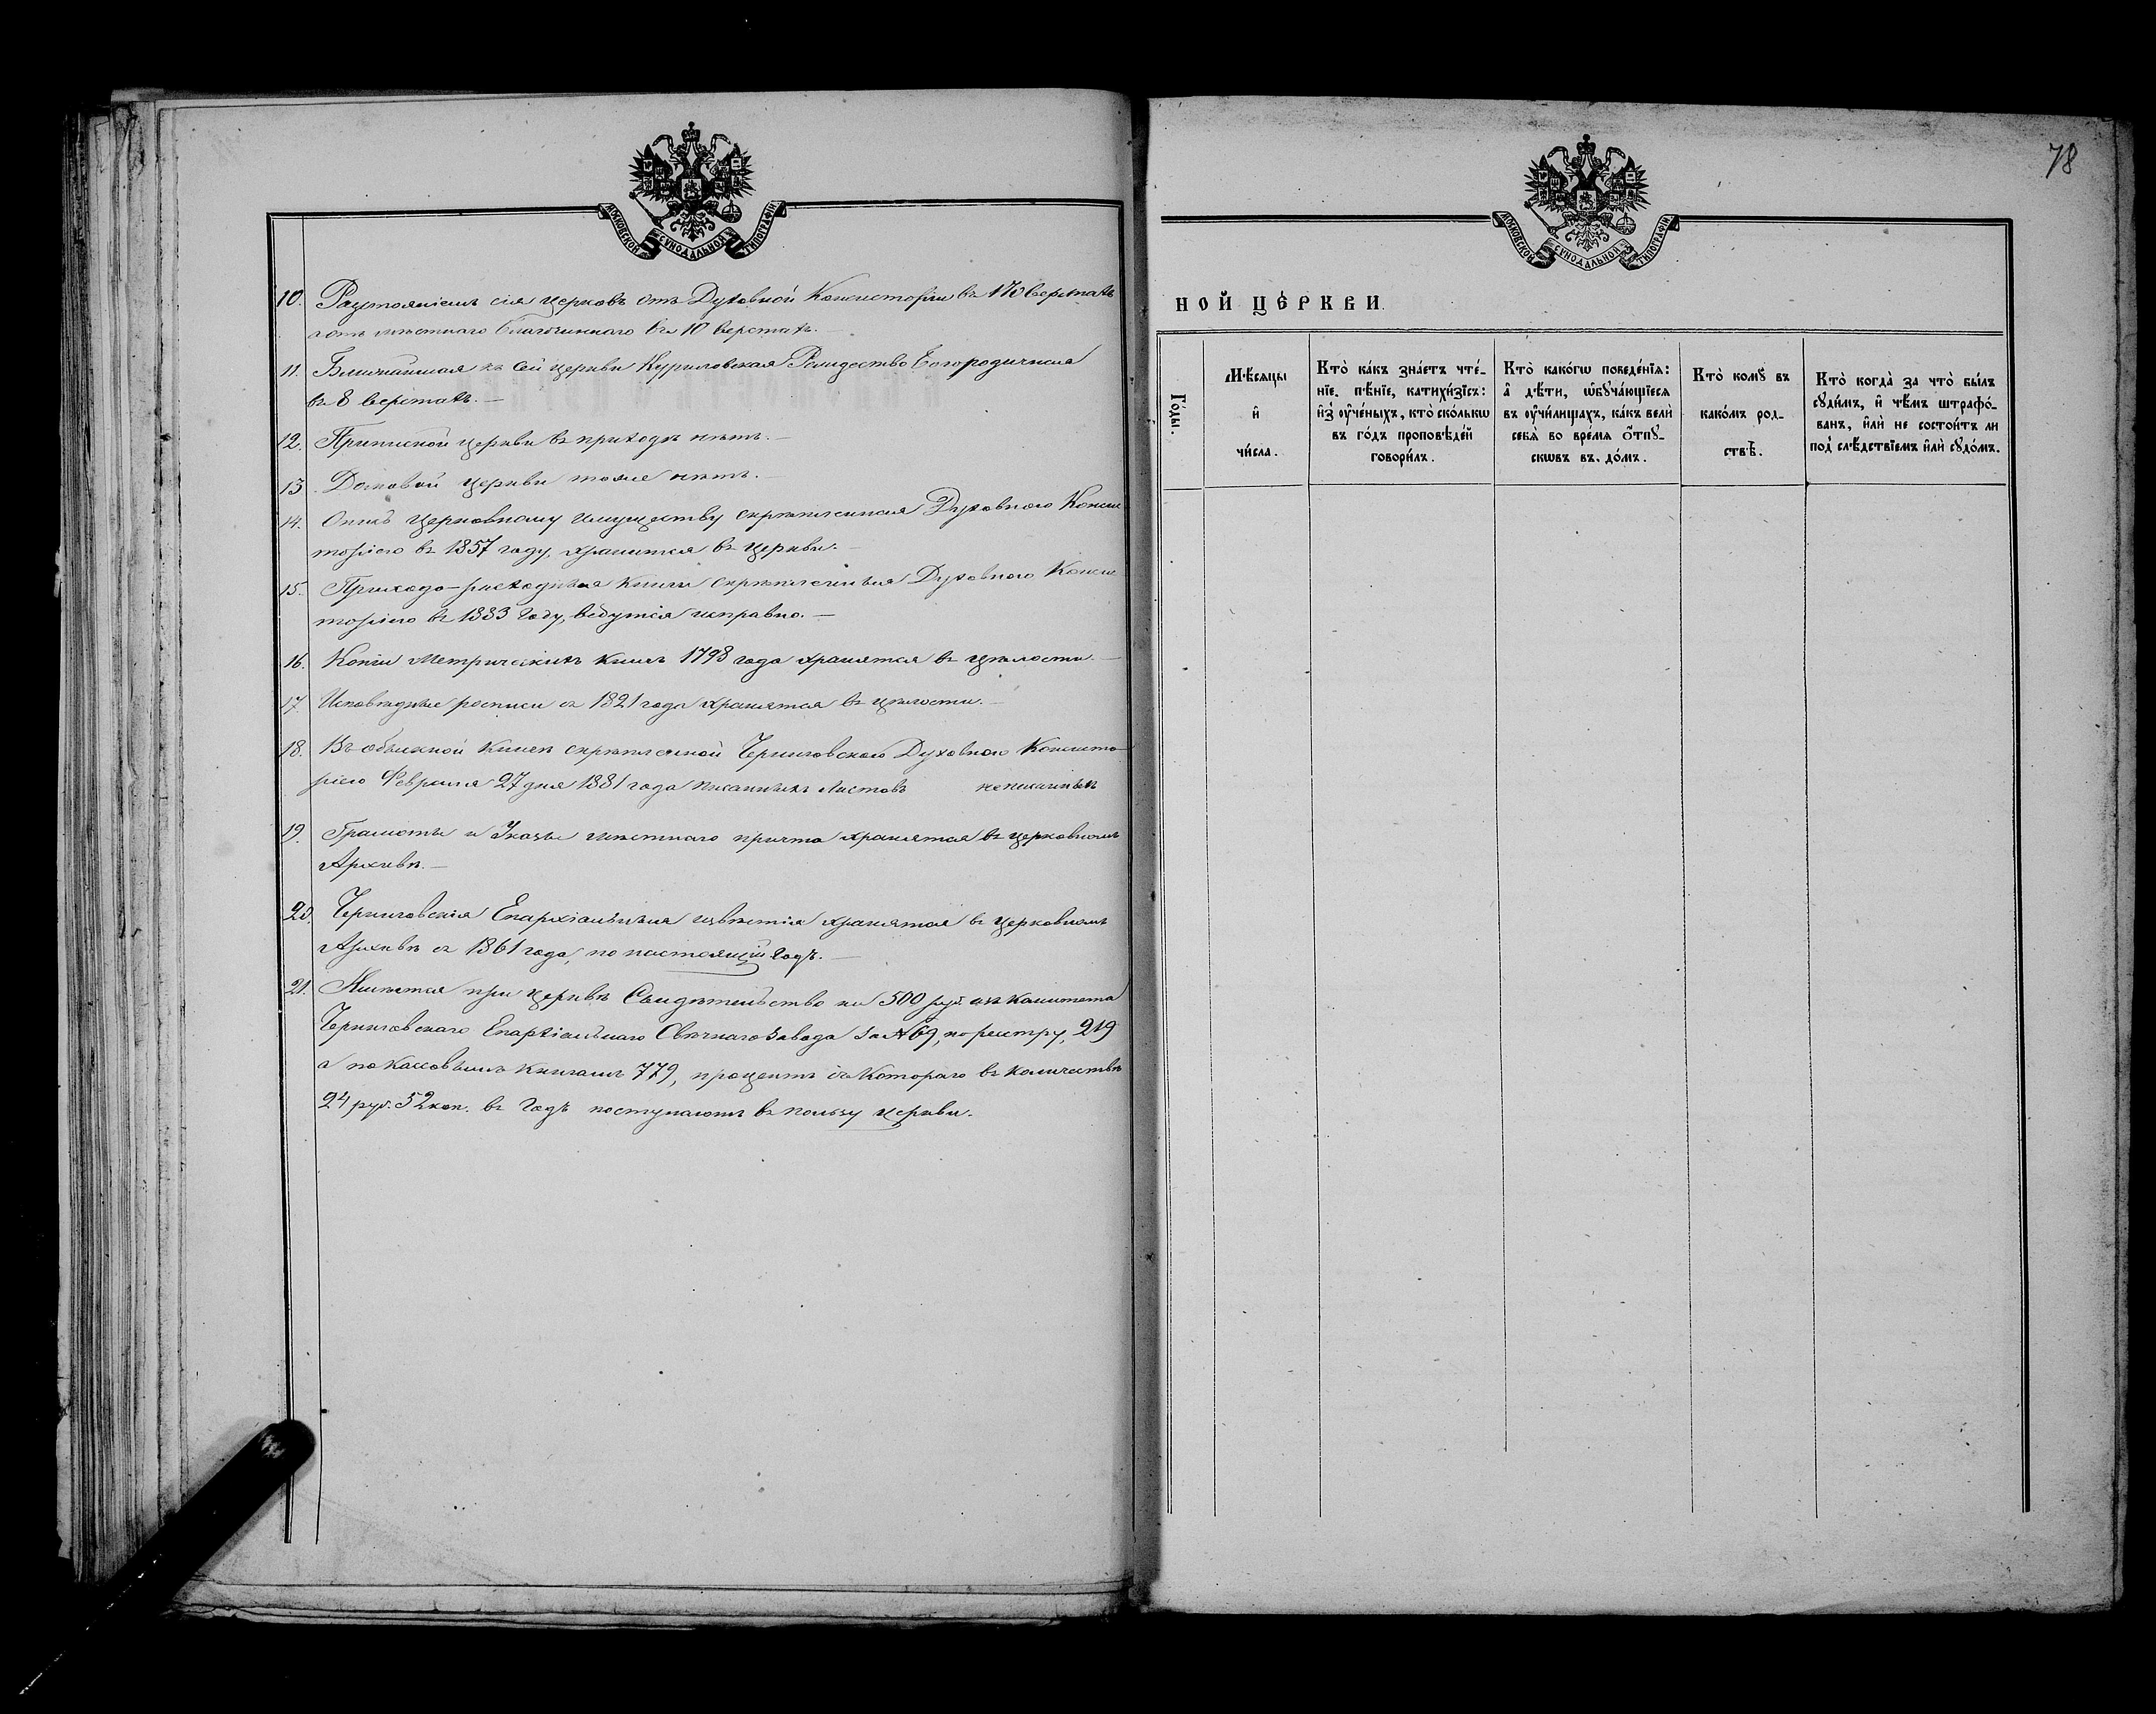 МОСКОВСКОЙ СѴНОДАЛЬНОЙ ТИПОГРАФІИ
10. Разстояніемъ сія церковь отъ Духовной Консисторіи въ 170 верстахъ
а отъ мѣстнаго благочиннаго въ 10 верстахъ.—
11. Ближайшая къ сей церкви Куриловская Рождество Богородичная
въ 8 верстахъ.—
12. Приписной церкви въ приходѣ нѣтъ.—
13. Домовой церкви тоже нѣтъ.—
14. Опись церковному имуществу скрѣпленная Духовною Конси
торіею въ 1857 году, хранится въ церкви.—
15. Приходо-расходныя книги скрѣпленныя Духовною Конси
торіею въ 1883 году, ведутся исправно.—
16. Копіи Метрическихъ книгъ 1798 года хранятся въ цѣлости.—
17. Исповѣдные росписи съ 1821 года хранятся въ цѣлости.—
18. Въ обыскной книгѣ скрѣпленной Черниговскою Духовною Консисто-
ріею Февраля 27 дня 1881 года писанныхъ листовъ неписанныхъ
19. Грамоты и Указы мѣстнаго причта хранятся въ церковномъ
Архивѣ.—
20. Черниговскія Епархіальныя извѣстія хранятся въ церковномъ
Архивѣ съ 1861 года, по настоящій годъ.—
21. Имѣется при церквѣ Свидѣтельство на 500 руб. изъ комитета
Черниговскаго Епархіальнаго Свѣчнаго Завода за № 69, по реестру, 219
а по кассовымъ книгамъ 779, процентъ съ котораго въ количествѣ
24 руб. 52 коп. въ годъ поступаютъ въ пользу церкви.
78
МОСКОВСКОЙ СѴНОДАЛЬНОЙ ТИПОГРАФІИ
НОЙ ЦЕ́РКВИ.
Го́ды.
Мѣ́сяцы
и҆
чи́сла.
Кто̀ ка́къ зна́етъ чте́-
нїе, пѣ́нїе, катихи́зїсъ:
и҆з̾ ᲂу҆че́ныхъ, кто̀ ско́лькѡ
въ го́дъ проповѣ́дей
говори́лъ.
Кто̀ како́гѡ поведе́нїя:
а҆ дѣ́ти, ѡ҆бꙋча́ющїеся
въ ᲂу҆чи́лищахъ, ка́къ велѝ
себѧ̀ во вре́мя ѿпꙋ-
скѡвъ въ до́мъ.
Кто̀ комꙋ̀ въ
како́мъ род-
ствѣ̀.
Кто̀ когда̀ за что̀ бы́лъ
сꙋди́мъ, и҆ чѣ́мъ штрафо́-
ванъ, и҆лѝ не состои́тъ ли
под̾ слѣ́дствїемъ и҆лѝ сꙋдо́мъ.